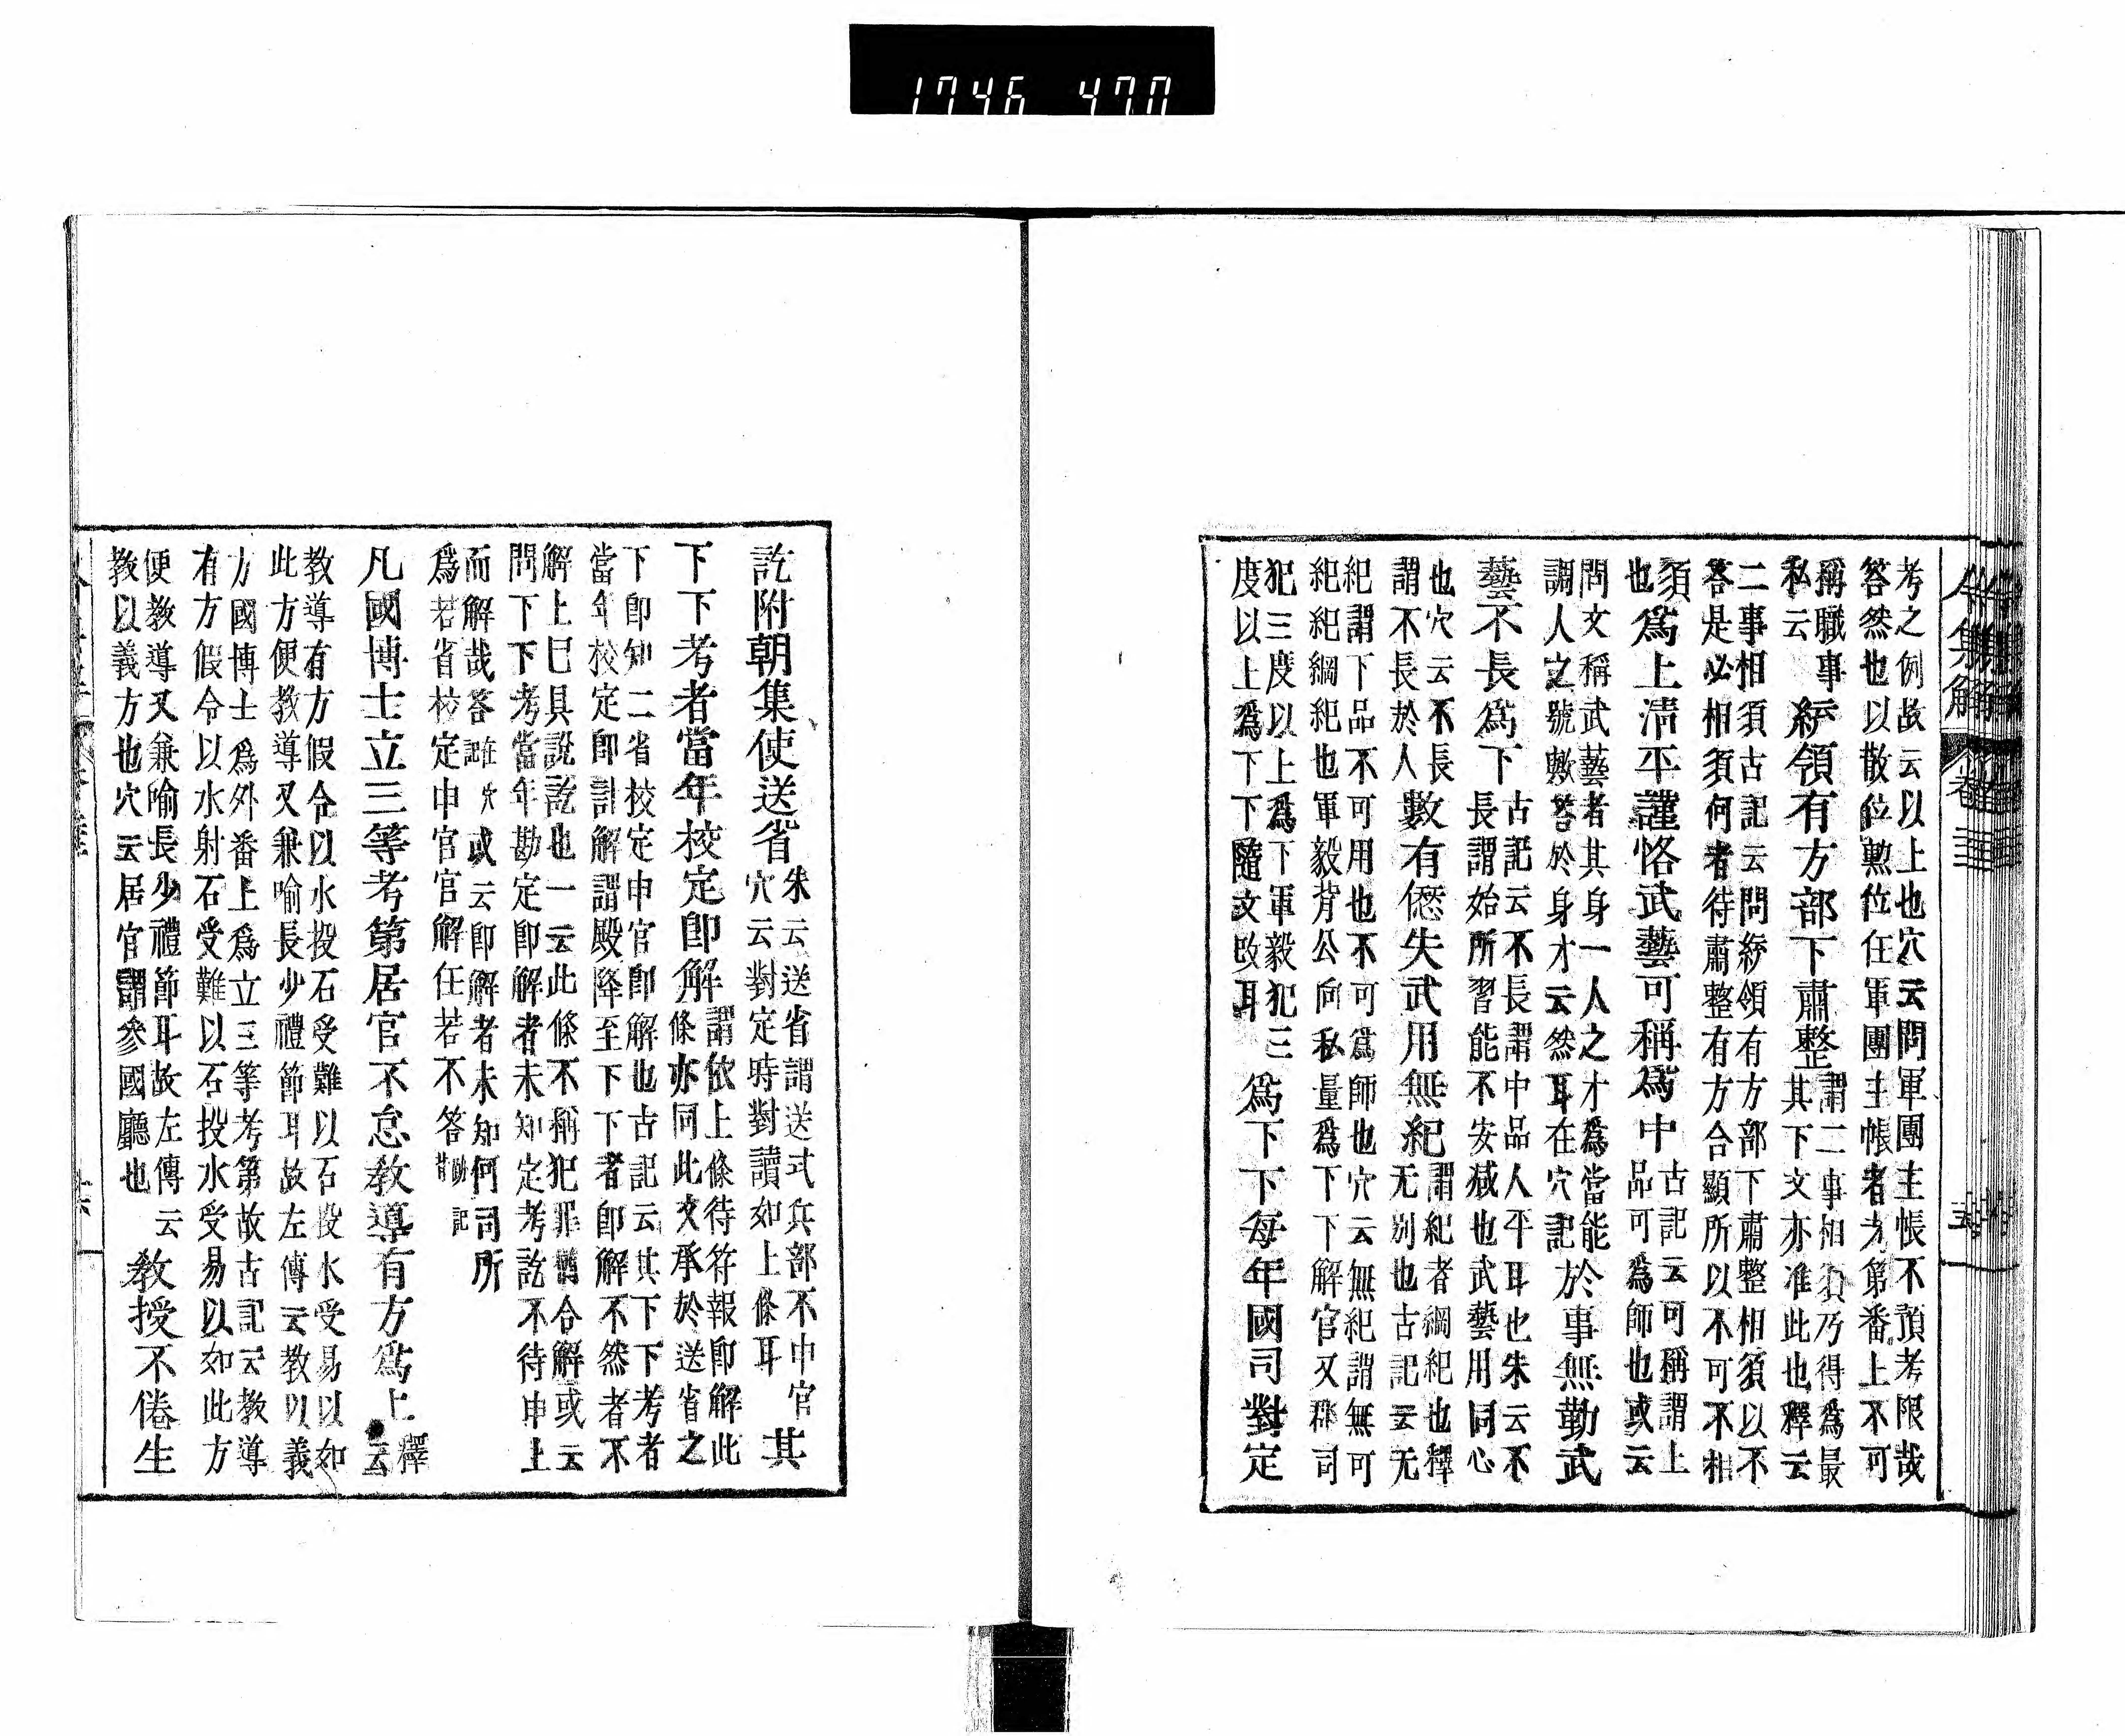 1746 470
令集解 卷 三 五
考之例故云以上也穴云問軍團主帳不預考限哉
答然也以散位勲位任軍團主帳者尢第番上不可
稱職事
私云
綂領有方部下肅整
謂二事相須乃得爲最
其下文亦准此也釋云
二事相須古記云問綂領有方部下肅整相須以不
答是必相須何者待肅整有方合顯所以不可不相
須
也
爲上淸平謹恪武藝可稱爲中
古記云可稱謂上
品可爲師也或云
問文稱武藝者其身一人之才爲當能
調人之號歟答於身才云然耳在穴記
於事無勤武
藝不長爲下
古記云不長謂中品人平耳也朱云不
長謂始所習能不安減也武藝用同心
也穴云不長
謂不長於人
數有愆失武用無紀
謂紀者綱紀也釋
无別也古記云无
紀謂下品不可用也不可爲師也穴云無紀謂無可
紀紀綱紀也軍毅背公向私量爲下下解官又郡司
犯三度以上爲下軍毅犯三
度以上爲下下隨文改耳
爲下下每年國司對定
訖附朝集使送省
朱云送省謂送式兵部不申官
穴云對定時對讀如上條耳
其
下下考者當年校定卽解
謂依上條待符報卽解此
條亦同此文承於送省之
下卽知二省校定申官卽解也古記云其下下考者
當年校定卽計解謂殿降至下下者卽解不然者不
解上巳具說訖也一云此條不稱犯罪舊合解或云
問下下考當年勘定卽解者未知定考訖不待申上
而解哉答跡穴或云卽解者未知何司所
爲若省校定申官官解任若不答
凡國博士立三等考第居官不怠敎導有方爲上
釋
云
敎導有方假令以水投石受難以石投水受易以如
此方便敎導又兼喻長少禮節耳故左傳云敎以義
方國博士爲外番上爲立三等考第故古記云敎導
有方假令以水射石受難以石投水受易以如此方
便敎導又兼喻長少禮節耳故左傳云
敎以義方也穴云居官謂參國廳也
敎授不倦生
六